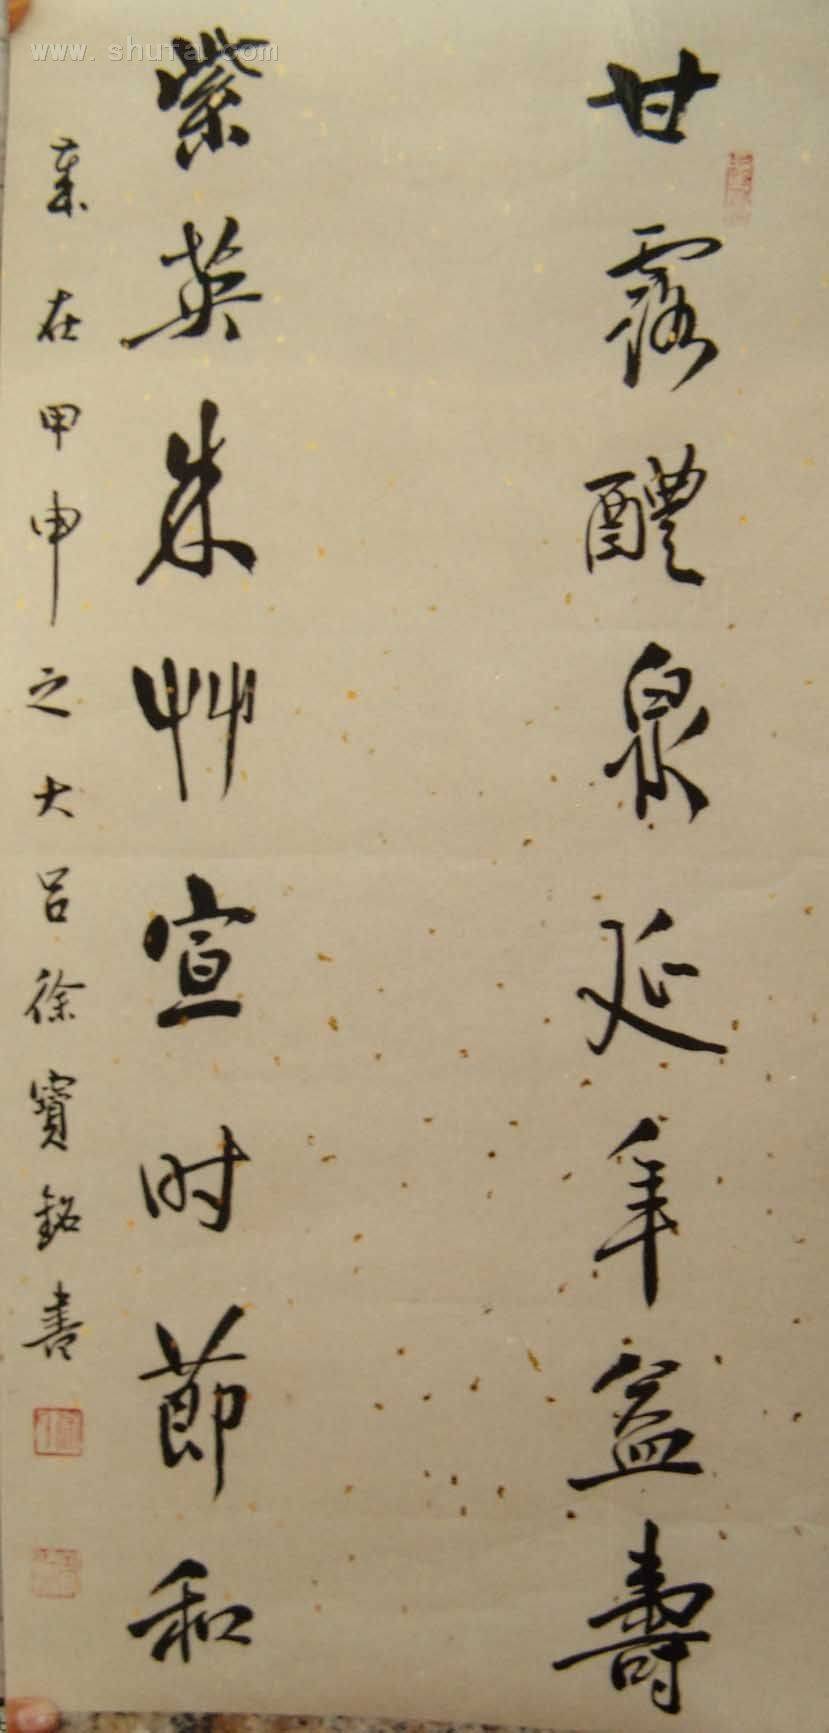 甘露醴泉延年益壽
紫英朱艸宣时節和
在甲申之大吕徐寶銘書
www.shufa.com